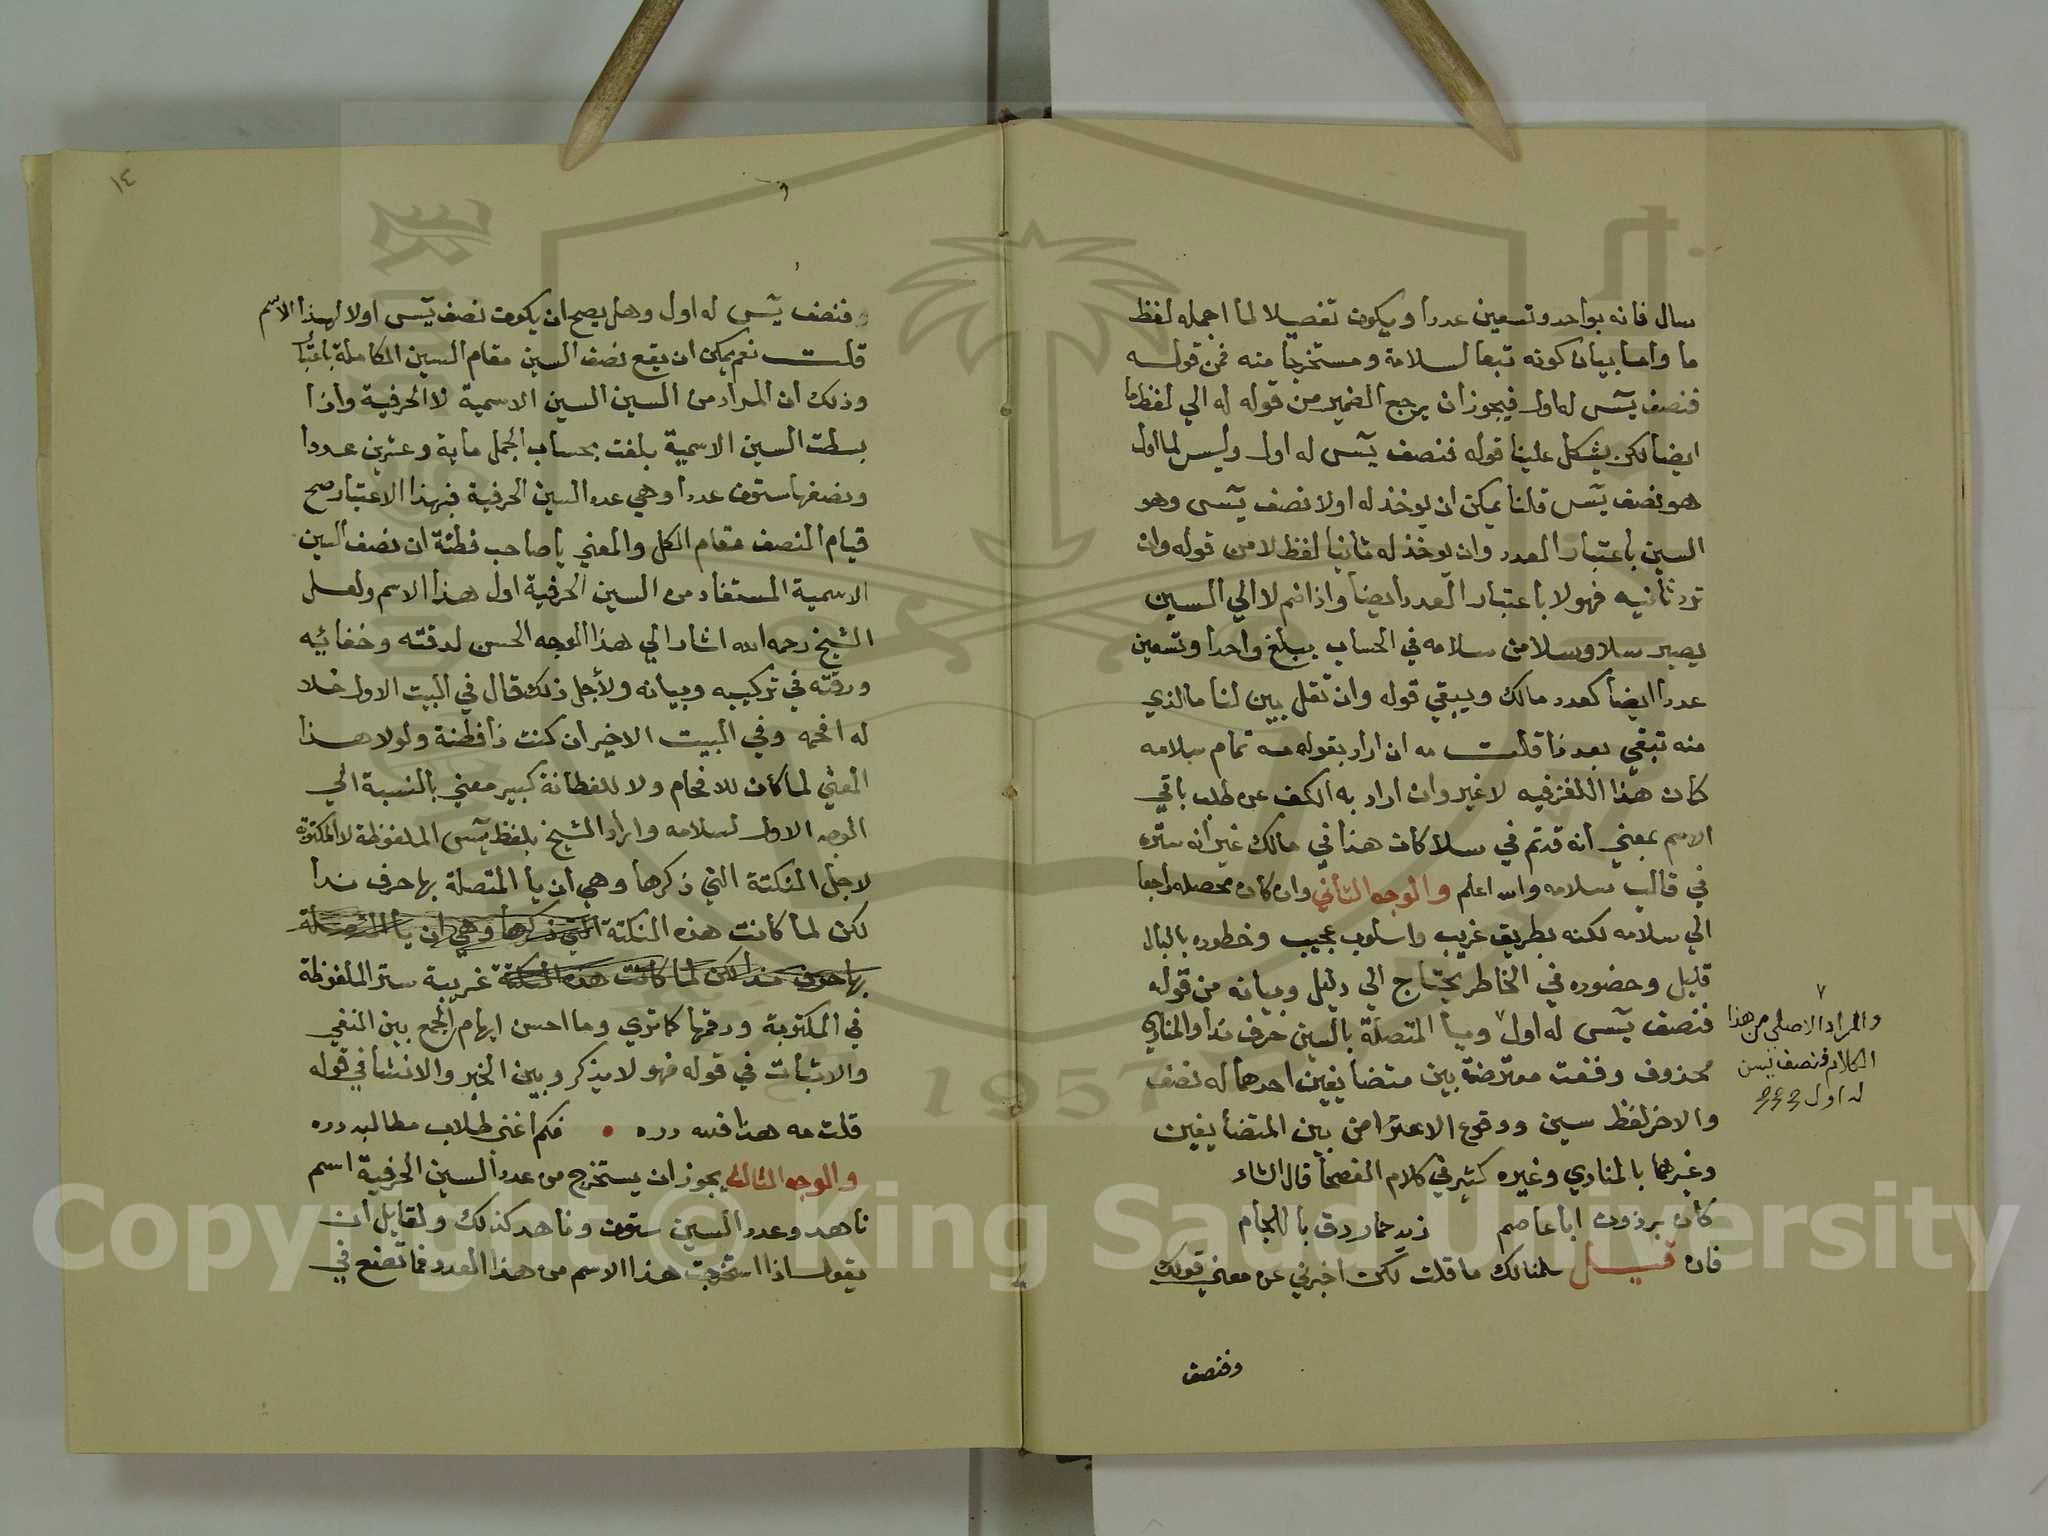 سال فانه بواحد وتسعين عددا ويكون تفصيلا لما اجمله لفظ
ما واما بيان كونه تبعا لسلامة ومستخرجا منه فمن قوله
فنصف يس له اول فيجوز ان يرجع الضمير من قوله له الي لفظ ما
ايضا لكن يشكل علينا قوله فنصف يس له اول وليس لما اول
هو نصف يس قلنا يمكن ان يوخذ له اولا نصف يس وهو
السين باعتبار العدد وان يوخذ له ثانيا لفظ لا من قوله وان
ترد ثانيه فهو لا باعتبار العدد ايضا واذا ضم لا الي السين
يصير سلا وسلا من سلامه في الحساب يبلغ واحدا وتسعين
عددا ايضا كعدد مالك ويبقي قوله وان تقل بين لنا ما الذي
منه تبقي بعد ذا قلت مه ان اراد بقوله مه تمام سلامه
كان هذا اللغز فيه لا غير وان اراد به الكف عن طلب باقي
الاسم بمعني انه قد تم في سلا كان هذا في مالك غير انه ستره
في قالب سلامه والله اعلم والوجه الثاني وان كان محصله راجعا
الي سلامه لكنه بطريق غريب واسلوب عجيب وخطوره بالبال
قليل وحضوره في الخاطر يحتاج الي دليل وبيانه من قوله
فنصف يس له اول ٧ ويا المتصلة بالسين حرف ندا والمنادي
محذوف وقعت معترضة بين متضايفين احدهما له نصف
والاخر لفظ سين ووقوع الاعتراض بين المتضايفين
وغيرهما بالمنادي وغيره كثير في كلام الفصحا قال الشاء
كأن برذون ابا عاصم زيد حمار دق باللجام
فان قيل سلمنا لك ما قلت لكن اخبرني عن معني قولك
وفنصف
٧
والمراد الاصلي من هذا
الكلام فنصف يس
له اول
١٤
وفنصف يس له اول وهل يصح ان يكون نصف يس اولا لهذا الاسم
قلت نعم يمكن ان يقع نصف السين مقام السين الكاملة باعتبا
وذلك ان المراد من السين السين الاسمية لا الحرفية واذا
بسطت السين الاسمية بلغت بحساب الجمل ماية وعشرين عددا
ونصفها ستون عددا وهي عدد السين الحرفية فبهذا الاعتبار صح
قيام النصف مقام الكل والمعني يا صاحب فطنة ان نصف السين
الاسمية المستفاد من السين الحرفية اول هذا الاسم ولعل
الشيخ رحمه الله اشار الي هذا الوجه الحسن لدقته وخفائيه
ورقته في تركيبه وبيانه ولاجل ذلك قال في البيت الاول خلا
له افحمه وفي البيت الاخير ان كنت ذا فطنة ولولا هذا
المعني لما كان للافحام ولا للفطانة كبير معني بالنسبة الي
الوجه الاول لسلامه واراد الشيخ بلفظ يس الملفوظة لا المكتوبة
لاجل النكتة التي ذكرها وهي ان يا المتصلة بها حرف ندا
لكن لما كانت هذه النكتة التي ذكرها وهي ان يا المتصلة
بها حرف ندا لكن لما كانت هذه النكتة غريبة ستر الملفوظة
في المكتوبة ورقمها كما تري وما احسن ايهام الجمع بين النفي
والاثبات في قوله فهو لا يذكر وبين الخبر والانشا في قوله
قلت مه هذا فيه درره فكم اغني طلاب مطالبه درره
والوجه الثالث يجوز ان يستخرج من عدد السين الحرفية اسم
ناهد وعدد السين ستون وناهد كذلك ولقايل ان
يقول اذا استخرجت هذا الاسم من هذا العدد فما تصنع في
Copyright © King Saud University
1957